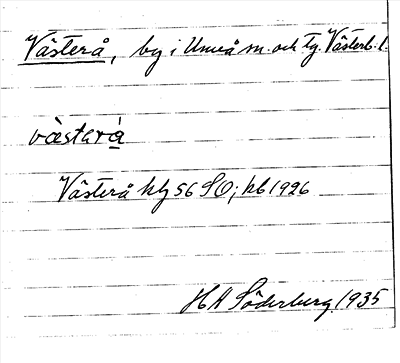 Västerå, by i Umeå sn. och tg. Västerb. l.
væ̀stərà̱
Västerå kbl 56 SO; kb 1926
HA Söderberg 1935